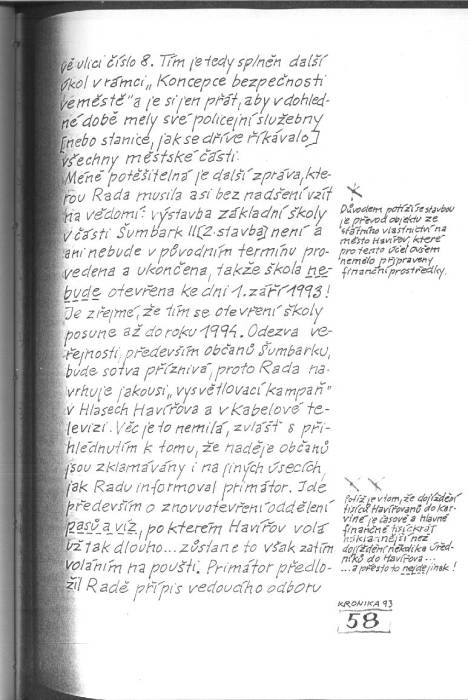 vé ulici číslo 8. Tím je tedy splněn další
úkol v rámci „Koncepce bezpečnosti
ve městě" a je si jen přát, aby v dohled-
né době mely své policejní služebny
[nebo stanice, jak se dříve říkávalo]
všechny městské části.
Méně potěšitelná je další zpráva, kte-
rou Rada musila asi bez nadšení vzít
na vědomí: výstavba základní školy
v části Šumbark II [2. stavba] není a
ani nebude v původním termínu pro-
vedena a ukončena, takže škola ne-
bude otevřena ke dni 1. září 1993!
Je zřejmé, že tím se otevření školy
posune až do roku 1994. Odezva ve-
řejnosti, především občanů Šumbarku,
bude sotva příznivá, proto Rada na-
vrhuje jakousi „vysvětlovací kampaň"
v Hlasech Havířova a v Kabelové te-
levizi. Věc je to nemilá, zvlášť s při-
hlédnutím k tomu, že naděje občanů
jsou zklamávány i na jiných úsecích,
jak Radu informoval primátor. Jde
především o znovuotevření oddělení
pasů a víz, po kterém Havířov volá
už tak dlouho... zůstane to však zatím
voláním na poušti. Primátor předlo-
žil Radě přípis vedoucího odboru
Důvodem potíží se stavbou
je převod objektu ze
státního vlastnictví na
město Havířov, které
pro tento účel ovšem
nemělo připraveny
finanční prostředky.
Potíž je v tom, že dojíždění
tisíců Havířovanů do Kar-
viné je časově a hlavně
finančně tisíckrát
nákladnější než
dojíždění několika úřed-
níků do Havířova...
...a přesto to nejde jinak!
KRONIKA 93
58